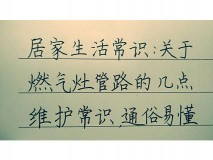 居家生活常识:关于
燃气灶管路的几点
维护常识,通俗易懂